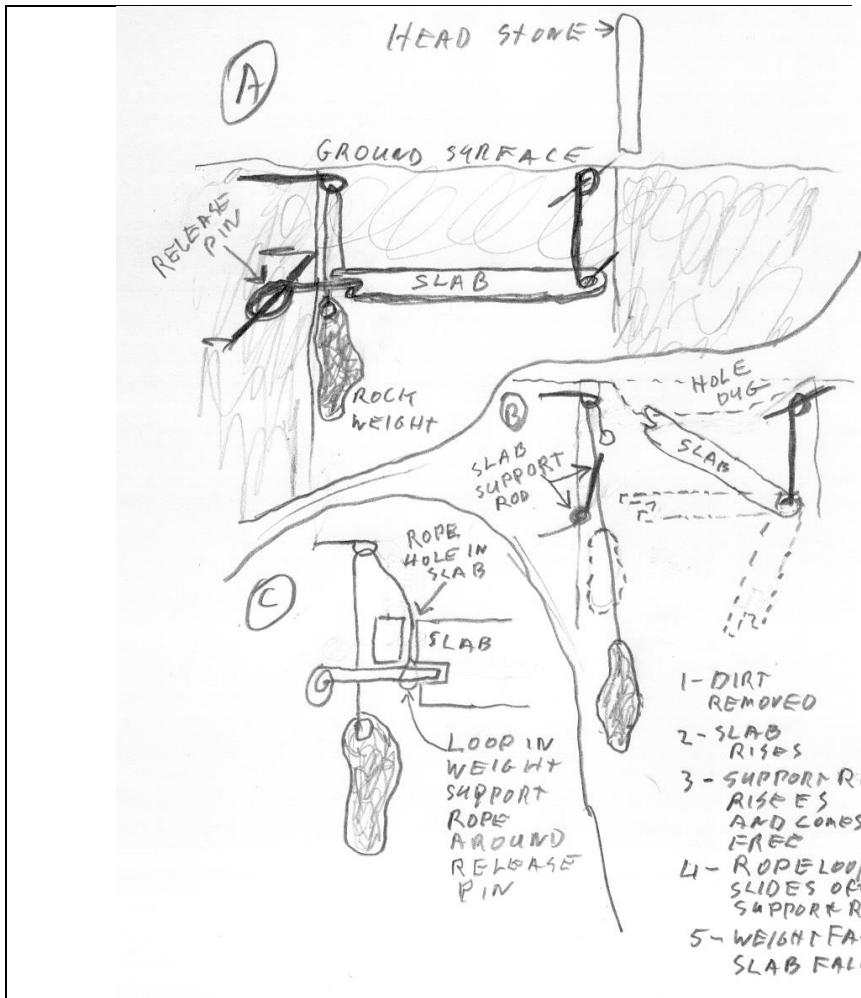 HEAD STONE
A
GROUND SURFACE
RELEASE
PIN
SLAB
ROCK
WEIGHT
B
HOLE
DUG
SLAB
SLAB
SUPPORT
ROD
C
ROPE
HOLE IN
SLAB
SLAB
LOOP IN
WEIGHT
SUPPORT
ROPE
AROUND
RELEASE
PIN
1- DIRT
REMOVED
2- SLAB
RISES
3- SUPPORT R
RISEES
AND COMES
FREE
4- ROPE LOOP
SLIDES OF
SUPPORT R
5- WEIGHT FA
SLAB FAL